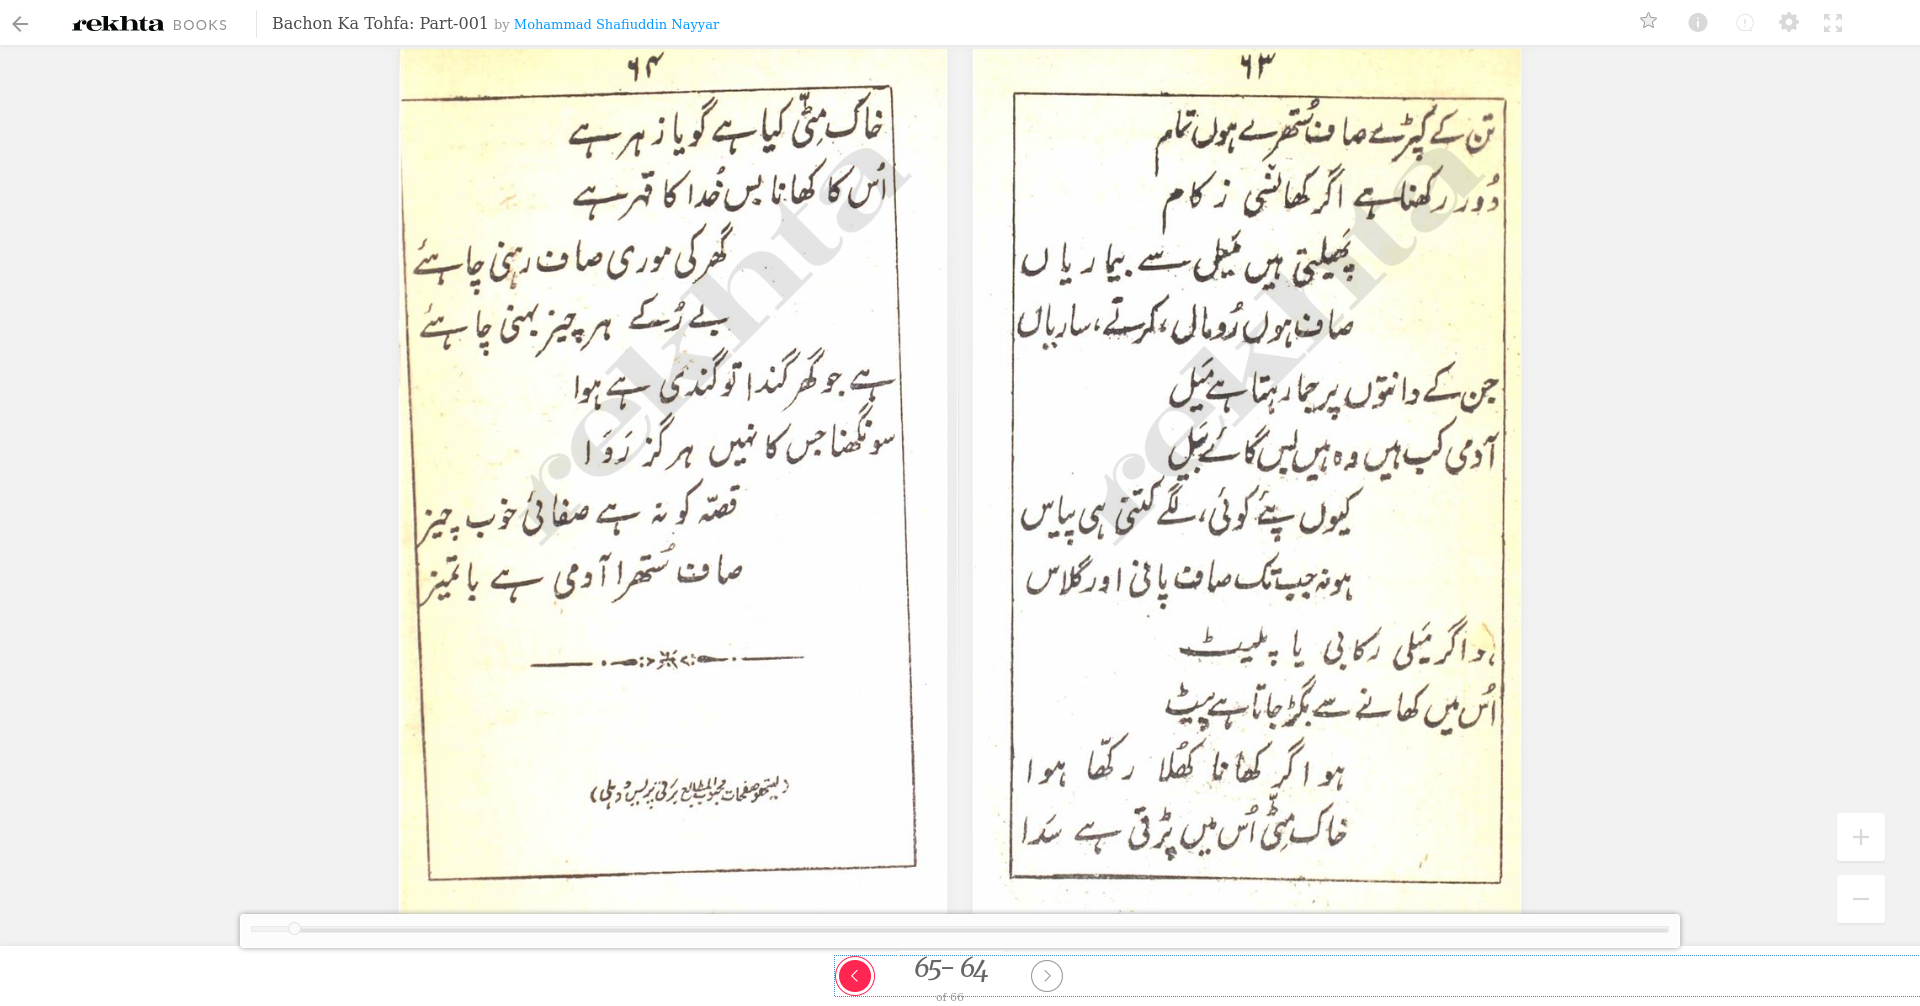 rekhta BOOKS
Bachon Ka Tohfa: Part-001 by Mohammad Shafiuddin Nayyar
۶۳
تن کے کپڑے صاف ستھرے ہوں تمام
دُور رکھنا ہے اگر کھانسی زکام
پھیلتی ہیں مَیل سے بیماریاں
صاف ہوں رُومالی، کرتے، ساریاں
جن کے دانتوں پر جما رہتا ہے مَیل
آدمی کب ہیں وہ ہیں بس گائے بَیل
کیوں پئے کوئی، لگے کتنی ہی پیاس
ہو نہ جب تک صاف پانی اور گلاس
ہو اگر مَیلی رکابی یا پلیٹ
اُس میں کھانے سے بگڑ جاتا ہے پیٹ
ہو اگر کھانا کھُلا رکھّا ہوا
خاک مِٹّی اُس میں پڑتی ہے سَدا
۶۴
خاک مِٹّی کیا ہے گویا زہر ہے
اُس کا کھانا بس خُدا کا قہر ہے
گھر کی موری صاف رہنی چاہئے
بے رُکے ہر چیز بہنی چاہئے
ہے جو گھر گندا تو گندی ہے ہوا
سونگھنا جس کا نہیں ہرگز رَوَا
قصّہ کو تہ ہے صفائی خوب چیز
صاف سُتھرا آدمی ہے باتمیز
(لیتھو صفحات محبوب المطابع برقی پریس دہلی)
rekhta
rekhta
65- 64
of 66